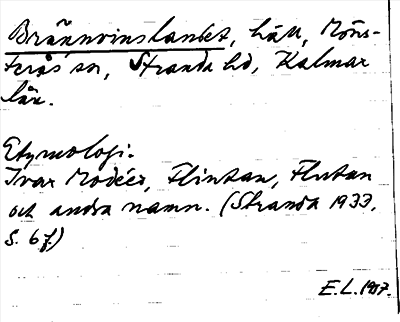 Brännvinslandet, häll, Möns-
terås sn, Stranda hd, Kalmar
län.
Etymologi.
Ivar Modéer, Flintan, Flutan
och andra namn. (Stranda 1933,
S. 6 f.)
E.L. 1987.